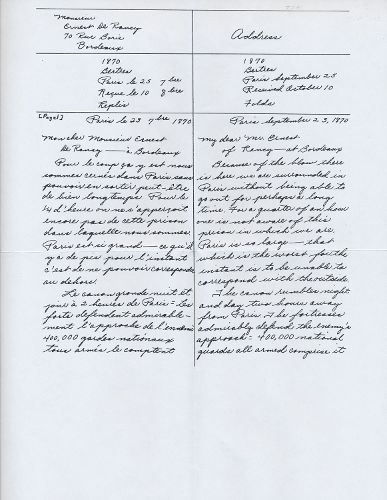 Monsieur
Ernest De Raney
70 Rue Borie
Bordeaux
1870
Berties
Paris le 23 7 bre
Reçue le 10 8 bre
Replis
[Page 1] Paris le 23 7 bre 1870
Mon cher Monsieur Ernest
de Raney — à Bordeaux
Pour le coup ça y est nous
sommes cernés dans Paris sans
pouvoir en sortir peut-être
de bien longtemps. Pour le
1/4 d'heure on ne s'aperçoit
encore pas de cette prison
dans laquelle nous sommes.
Paris est si grand — ce qu'il
y a de pis pour l'instant
c'est de ne pouvoir correspondre
au dehors.
Le canon gronde nuit et
jour à 2 heures de Paris = Les
forts défendent admirable-
ment l'approche de l'ennemi
400,000 gardes nationaux
tous armés le comptent
Address
1870
Berties
Paris September 23
Received October 10
Folds
Paris September 23, 1870
My dear Mr. Ernest
of Raney — at Bordeaux
Because of the blow, there
is here we are surrounded in
Paris without being able to
go out for perhaps a long
time. For a quarter of an hour
one is not aware of this
prison in which we are.
Paris is so large — that
which is the worst for the
instant is to be unable to
correspond with the outside.
The canon rumbles night
and day two hours away
from Paris. The fortresses
admirably defend the enemy's
approach = 400,000 national
guards all armed comprise it